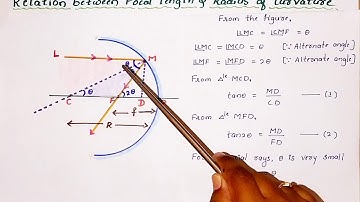 Relation between Focal length & Radius of Curvature
From the figure,
∠LMC = ∠CMF = θ
∠LMC = ∠MCD = θ [∵ Altronate angle]
∠LMF = ∠MFD = 2θ [∵ Altronate angle]
From Δle MCD,
tanθ = MD/CD — (1)
From Δle MFD,
tan2θ = MD/FD — (2)
rays, θ is very small
L
M
θ
C
θ
F
2θ
D
f
R